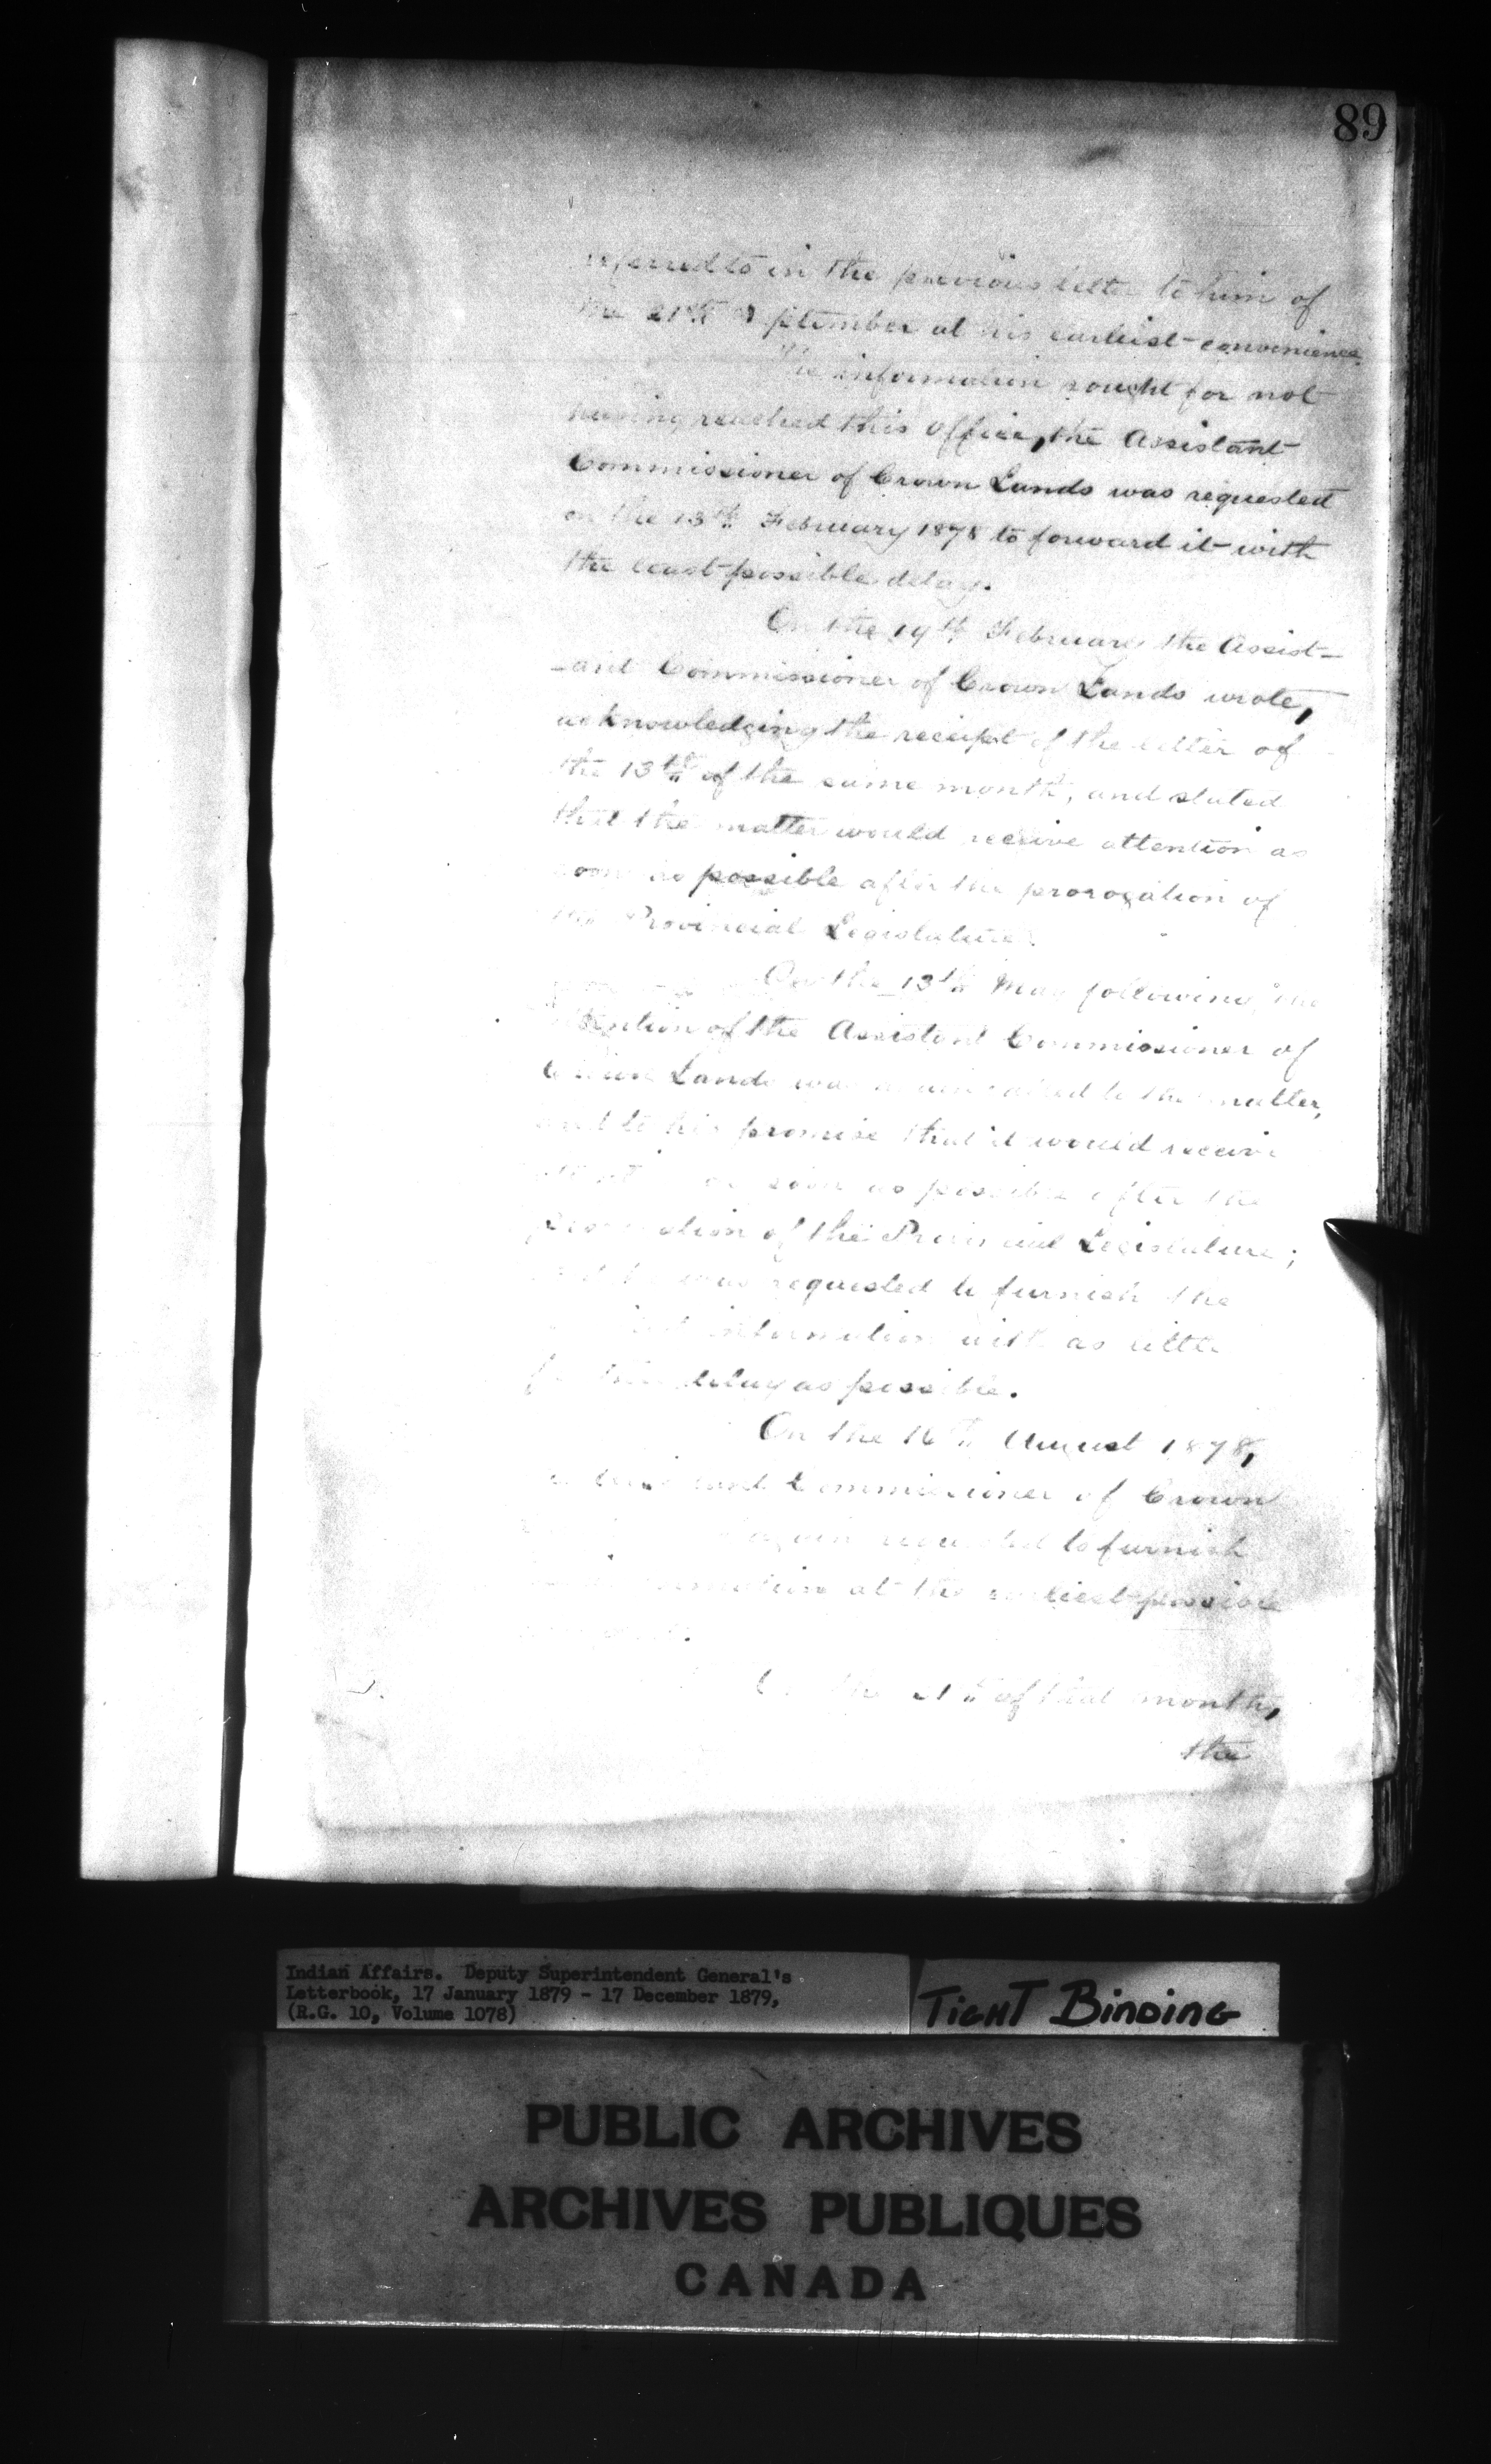 89
referred to in the previous letter to him of
the 21st September at his earliest convenience.
The information sought for not
having reached this Office, the Assistant
Commissioner of Crown Lands was requested
on the 13th February 1878 to forward it with
the least possible delay.
On the 19th February the Assist-
-ant Commissioner of Crown Lands wrote,
acknowledging the receipt of the letter of
the 13th of the same month, and stated
that the matter would receive attention as
soon as possible after the prorogation of
the Provincial Legislature.
On the 13th May following the
attention of the Assistant Commissioner of
Crown Lands was again called to the matter,
and to his promise that it would receive
as soon as possible after the
prorogation of the Provincial Legislature;
was requested to furnish the
information with as little
further delay as possible.
On the 16th August 1878,
Commissioner of Crown
again requested to furnish
information at the earliest possible
the of that month,
the
Indian Affairs. Deputy Superintendent General's
Letterbook, 17 January 1879 - 17 December 1879,
(R.G. 10, Volume 1078)
TIGHT BINDING
PUBLIC ARCHIVES
ARCHIVES PUBLIQUES
CANADA